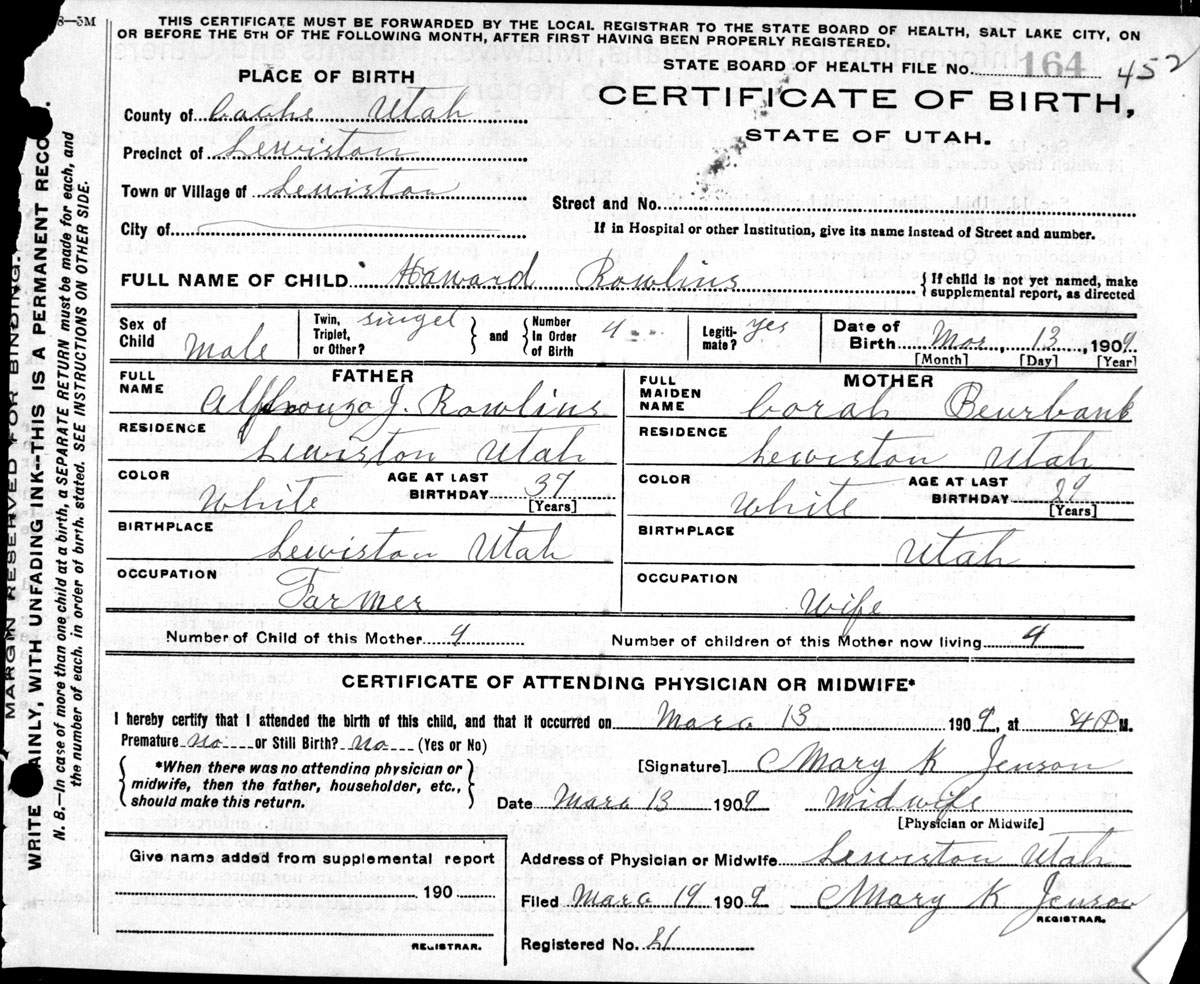 8—5M
THIS CERTIFICATE MUST BE FORWARDED BY THE LOCAL REGISTRAR TO THE STATE BOARD OF HEALTH, SALT LAKE CITY, ON
OR BEFORE THE 5TH OF THE FOLLOWING MONTH, AFTER FIRST HAVING BEEN PROPERLY REGISTERED.
STATE BOARD OF HEALTH FILE No. 164 452
PLACE OF BIRTH
CERTIFICATE OF BIRTH,
STATE OF UTAH.
County of Cache Utah
Precinct of Lewiston
Town or Village of Lewiston
Street and No.
City of
If in Hospital or other Institution, give its name instead of Street and number.
FULL NAME OF CHILD Haward Rowlins { If child is not yet named, make
supplemental report, as directed
Sex of Child Male
Twin, Triplet, or Other? singel } and { Number In Order of Birth 4
Legiti-mate? yes
Date of Birth Mar, 13, 1909
[Month] [Day] [Year]
FATHER
FULL NAME Alphonzo J. Rowlins
RESIDENCE Lewiston Utah
COLOR White AGE AT LAST BIRTHDAY 39 [Years]
BIRTHPLACE Lewiston Utah
OCCUPATION Farmer
MOTHER
FULL MAIDEN NAME Corah Beurbank
RESIDENCE Lewiston Utah
COLOR White AGE AT LAST BIRTHDAY 29 [Years]
BIRTHPLACE Utah
OCCUPATION Wife
Number of Child of this Mother 4 Number of children of this Mother now living 4
CERTIFICATE OF ATTENDING PHYSICIAN OR MIDWIFE*
I hereby certify that I attended the birth of this child, and that it occurred on Marc 13 1909, at M.
Premature no or Still Birth? No (Yes or No)
{ *When there was no attending physician or
midwife, then the father, householder, etc.,
should make this return. }
[Signature] Mary K Jenson
Date Marc 13 1909 Midwife
[Physician or Midwife]
Give name added from supplemental report
190
REGISTRAR.
Address of Physician or Midwife Lewiston Utah
Filed Marc 19 1909 Mary K Jenson
REGISTRAR.
Registered No. 21
MARGIN RESERVED FOR BINDING.
WRITE AINLY, WITH UNFADING INK--THIS IS A PERMANENT RECO
N. B.—In case of more than one child at a birth, a SEPARATE RETURN must be made for each, and
the number of each. in order of birth. stated. SEE INSTRUCTIONS ON OTHER SIDE.